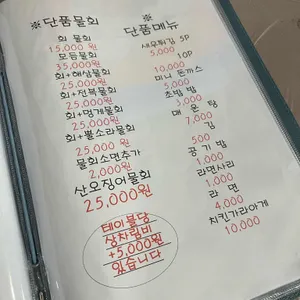 ※단품물회
회 물회
15,000 원
모듬물회
35,000원
회+해삼물회
25,000 원
회+전복물회
25,000원
회+멍게물회
25,000 원
회+뿔소라물회
25,000 원
물회소면추가
2,000 원
산오징어물회
25,000원
테이블당
상차림비
+5,000원
있습니다
※ 단품메뉴
새우튀김 5P
5,000
10P
10,000
미니 돈까스
5,000
초밥 밥
3,000
매 운 탕
7,000
김
500
공 기 밥
1,000
라면사리
1,000
라 면
4,000
치킨가라아게
10,000